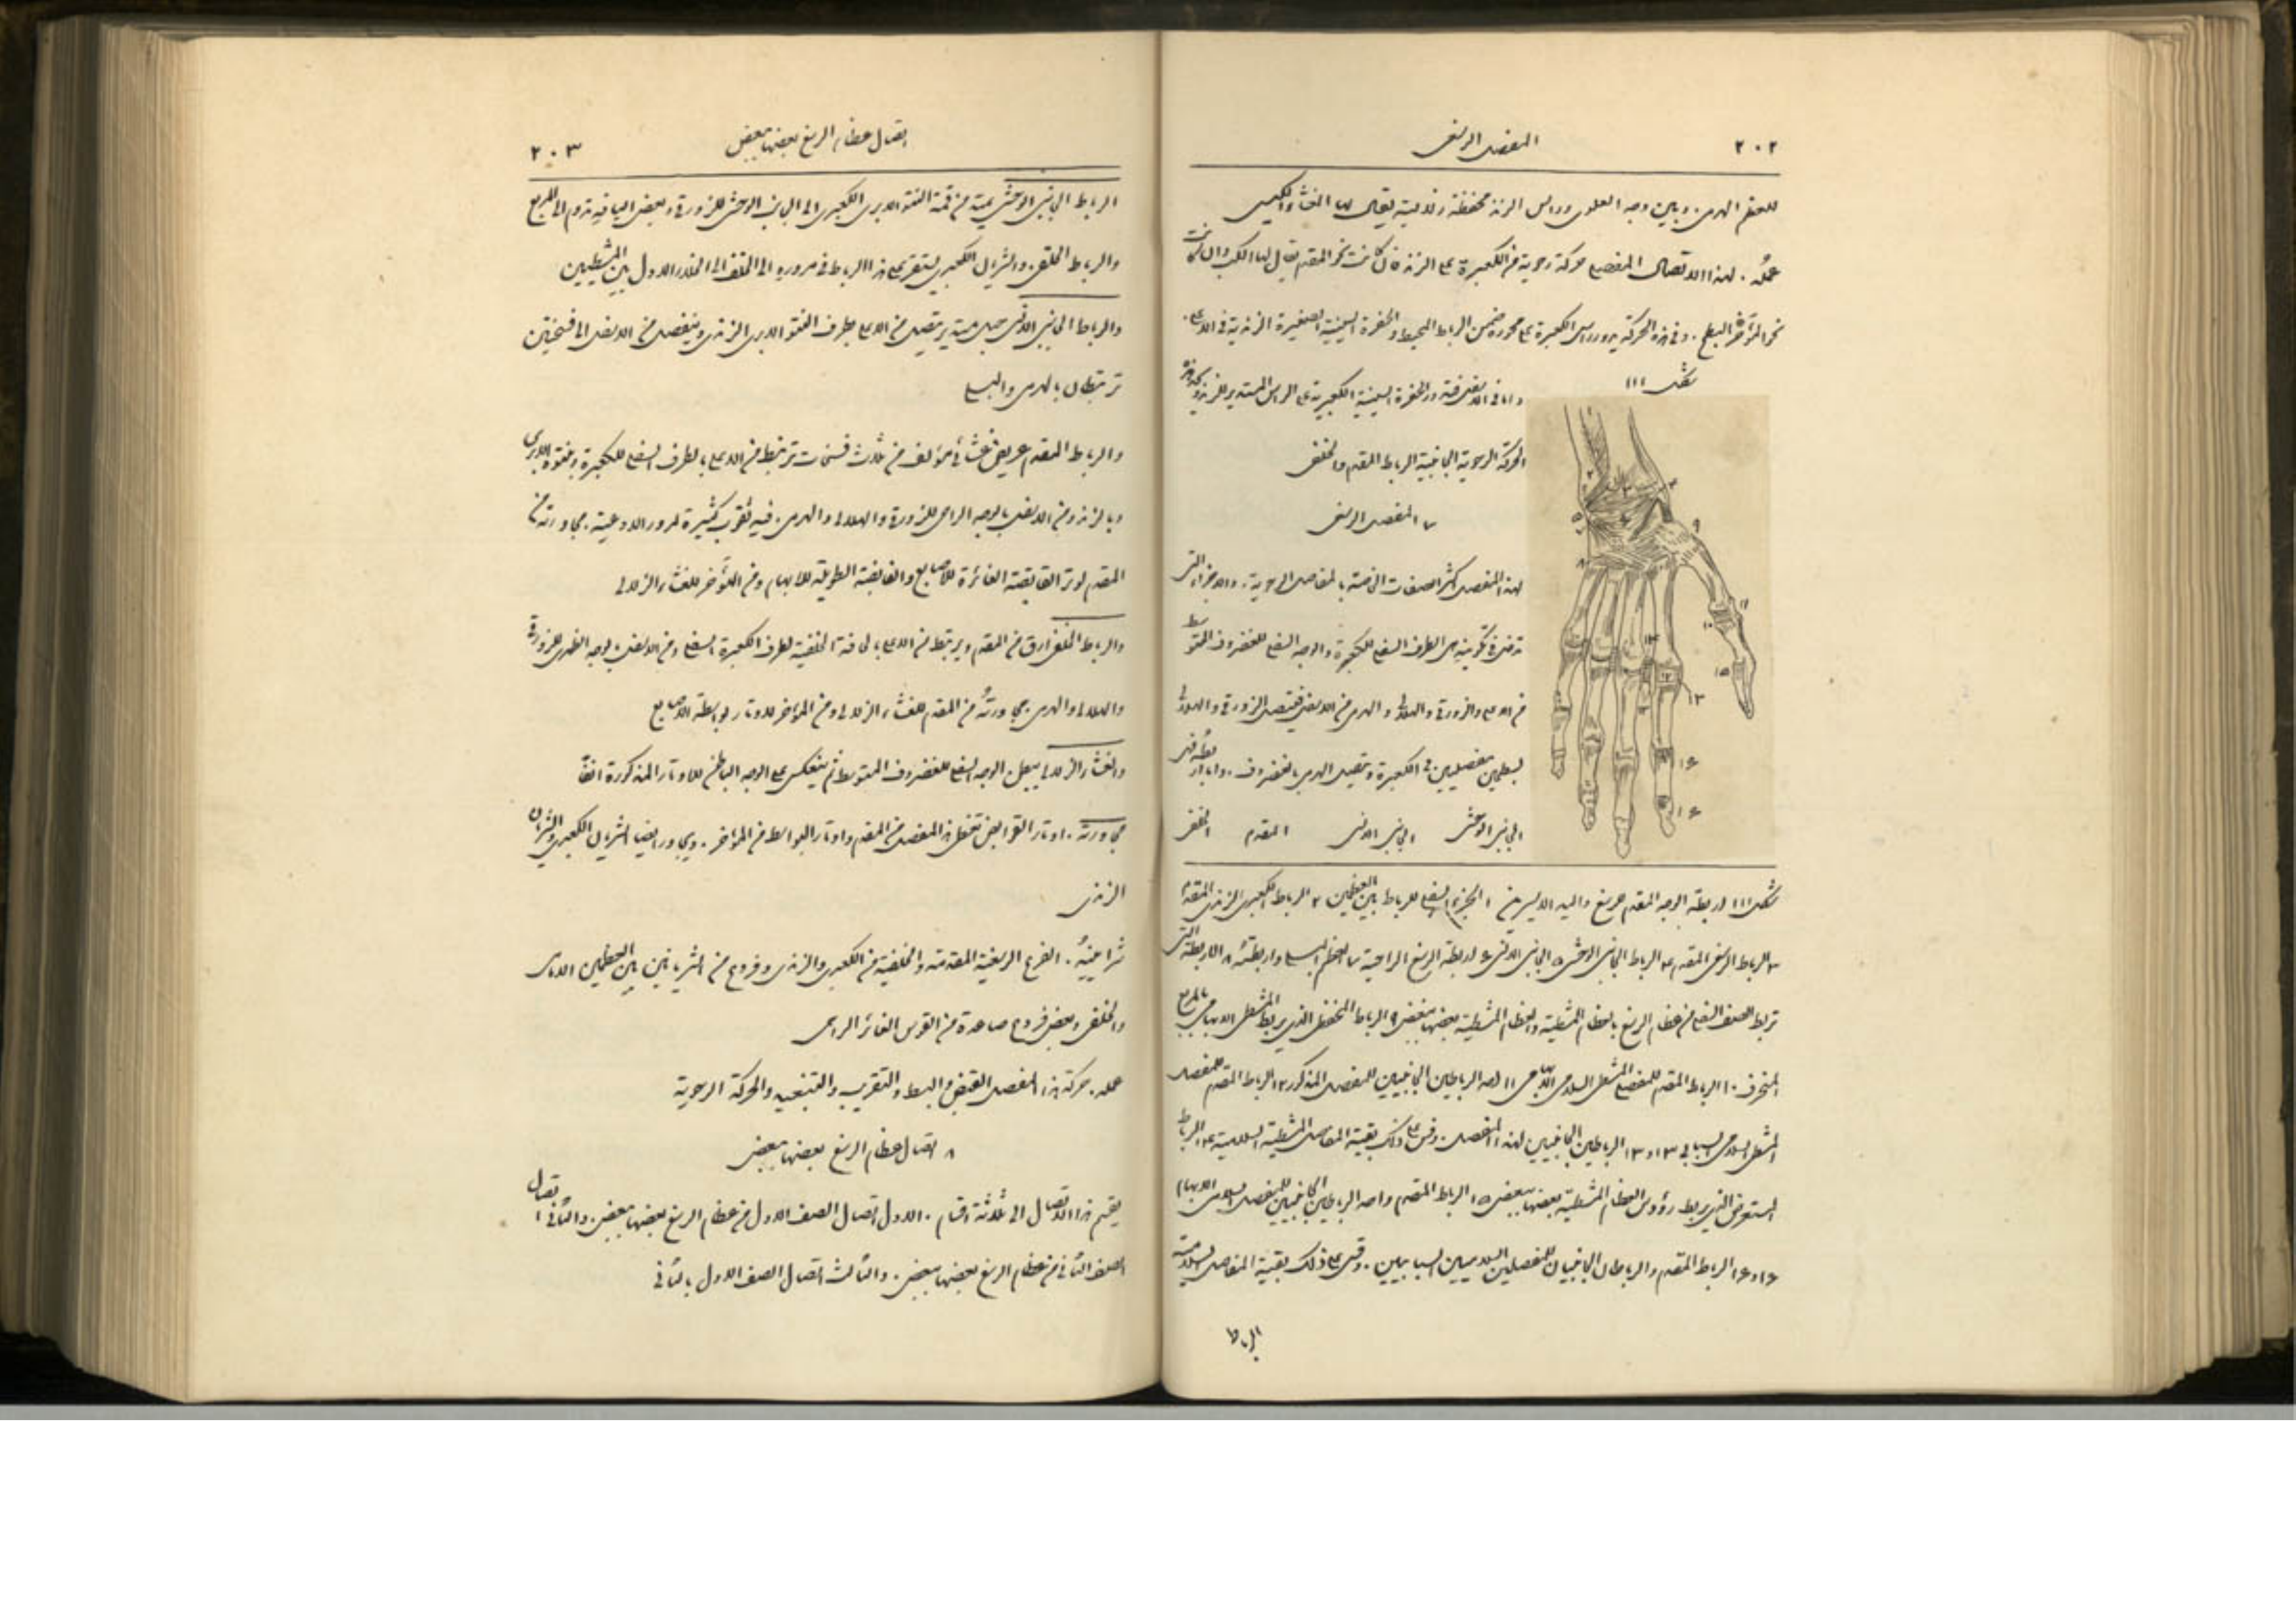 ٢٠٢
المفصل الرسغى
للعظم الهرمى وبين وجه العلوى وراس الزند محفظة زلالية يقال لها الغشاء الكيسى
عمله . لهذا الاتصال المفصلى حركة رحوية من الكعبرة على الزند فان كانت نحو المقدم يقال لها الكب وان كانت
نحو المؤخر البطح . وفى هذه الحركة يدور راس الكعبرة على محوره ضمن الرباط المحيط والحفرة السينية الصغيرة الزندية فى الاعلى .
شكل ١١١
واما فى الاسفل فتدور الحفرة السينية الكعبرية على الراس المستدير للزند
الحركة الرحوية الجانبية الرباط المقدم والخلفى
٧ المفصل الرسغى
لهذا المفصل اكثر الصفات الخاصة بالمفاصل الرحوية . والاجزاء التى
تدخل فى تكوينه هى الطرف السفلى للكعبرة والوجه السفلى للغضروف المتوسط
من الاعلى والزورقى والهلالى والهرمى من الاسفل فيتصل الزورقى والهلالى
بسطحين مفصليين فى الكعبرة ويتصل الهرمى بالغضروف . واما اربطته فهى
الجانبى الوحشى الجانبى الانسى المقدم الخلفى
شكل ١١١ اربطة الوجه المقدم للرسغ واليد الايسر من ١ الجزء السفلى للرباط بين العظمين ٢ الرباط الكعبرى الزندى المقدم
٣ الرباط الرسغى المقدم ٤ الرباط الجانبى الوحشى ٥ الجانبى الانسى ٦ اربطة الرسغ الراحية ٧ العظم البسلى واربطته ٨ الاربطة التى
تربط الصف السفلى من عظام الرسغ بالعظام المشطية والعظام المشطية بعضها ببعض ٩ الرباط المحفظى الذى يربط المشطى الابهامى بالمربع
المنحرف ١٠ الرباط المقدم للمفصل المشطى السلامى الابهامى ١١ احد الرباطين الجانبيين للمفصل المذكور ١٢ الرباط المقدم للمفصل
المشطى السلامى السبابى ١٣ و١٣ الرباطين الجانبيين لهذا المفصل . وقس على ذلك بقية المفاصل المشطية السلامية ١٤ الرباط
المستعرض الذى يربط رؤوس العظام المشطية بعضها ببعض ١٥ الرباط المقدم واحد الرباطين الجانبيين للمفصل السلامى الابهامى
١٦ و١٦ الرباط المقدم والرباطان الجانبيان للمفصلين السلاميين السبابيين . وقس على ذلك بقية المفاصل السلامية
الرباط
اتصال عظام الرسغ بعضها ببعض
٢٠٣
الرباط الجانبى الوحشى يمتد من قمة النتو الابرى الكعبرى الى الجانب الوحشى للزورقى وبعض اليافه تذهب الى المربع
والرباط الحلقى . والشريان الكعبرى يستقر على هذا الرباط فى مروره الى الخلف الى الخلال الاول بين المشطيين
والرباط الجانبى الانسى حبل مستدير يتصل من الاعلى بطرف النتو الابرى الزندى وينفصل من الاسفل الى فسختين
ترتبطان بالهرمى والبسلى
والرباط المقدم عريض غشائى مؤلف من ثلاث فسخات ترتبط من الاعلى بالطرف السفلى للكعبرة ونتوه الابرى
وبالزند ومن الاسفل بالوجه الراحى للزورقى والهلالى والهرمى . فيه ثقوب كثيرة لمرور الاوعية . مجاورته من
المقدم لوتر القابضة الغائرة للاصابع والقابضة الطويلة للابهام ومن المؤخر للغشاء الزلالى
والرباط الخلفى ارق من المقدم ويرتبط من الاعلى بالحافة الخلفية لطرف الكعبرة السفلى ومن الاسفل بالوجه الظهرى للزورقى
والهلالى والهرمى . مجاورته من المقدم للغشاء الزلالى ومن المؤخر للاوتار لباسطة الاصابع
والغشاء الزلالى يبطن الوجه السفلى للغضروف المتوسط ثم ينعكس على الوجه الباطن للاوتار المذكورة انفا
مجاورته . اوتار القوابض تغطى هذا المفصل من المقدم واوتار البواسط من المؤخر . ويجاور ايضا الشريان الكعبرى والشريان
الزندى
شرايينه . الفروع الرسغية المقدمة والخلفية من الكعبرى والزندى وفروع من الشريانين بين العظمين الامامى
والخلفى وبعض فروع صاعدة من القوس الغائر الراحى
عمله . حركة هذا المفصل القبض والبسط والتقريب والتبعيد والحركة الرحوية
٨ اتصال عظام الرسغ بعضها ببعض
يقسم هذا الاتصال الى ثلاثة اقسام . الاول اتصال الصف الاول من عظام الرسغ بعضها ببعض . والثانى اتصال
الصف الثانى من عظام الرسغ بعضها ببعض . والثالث اتصال الصف الاول بالثانى